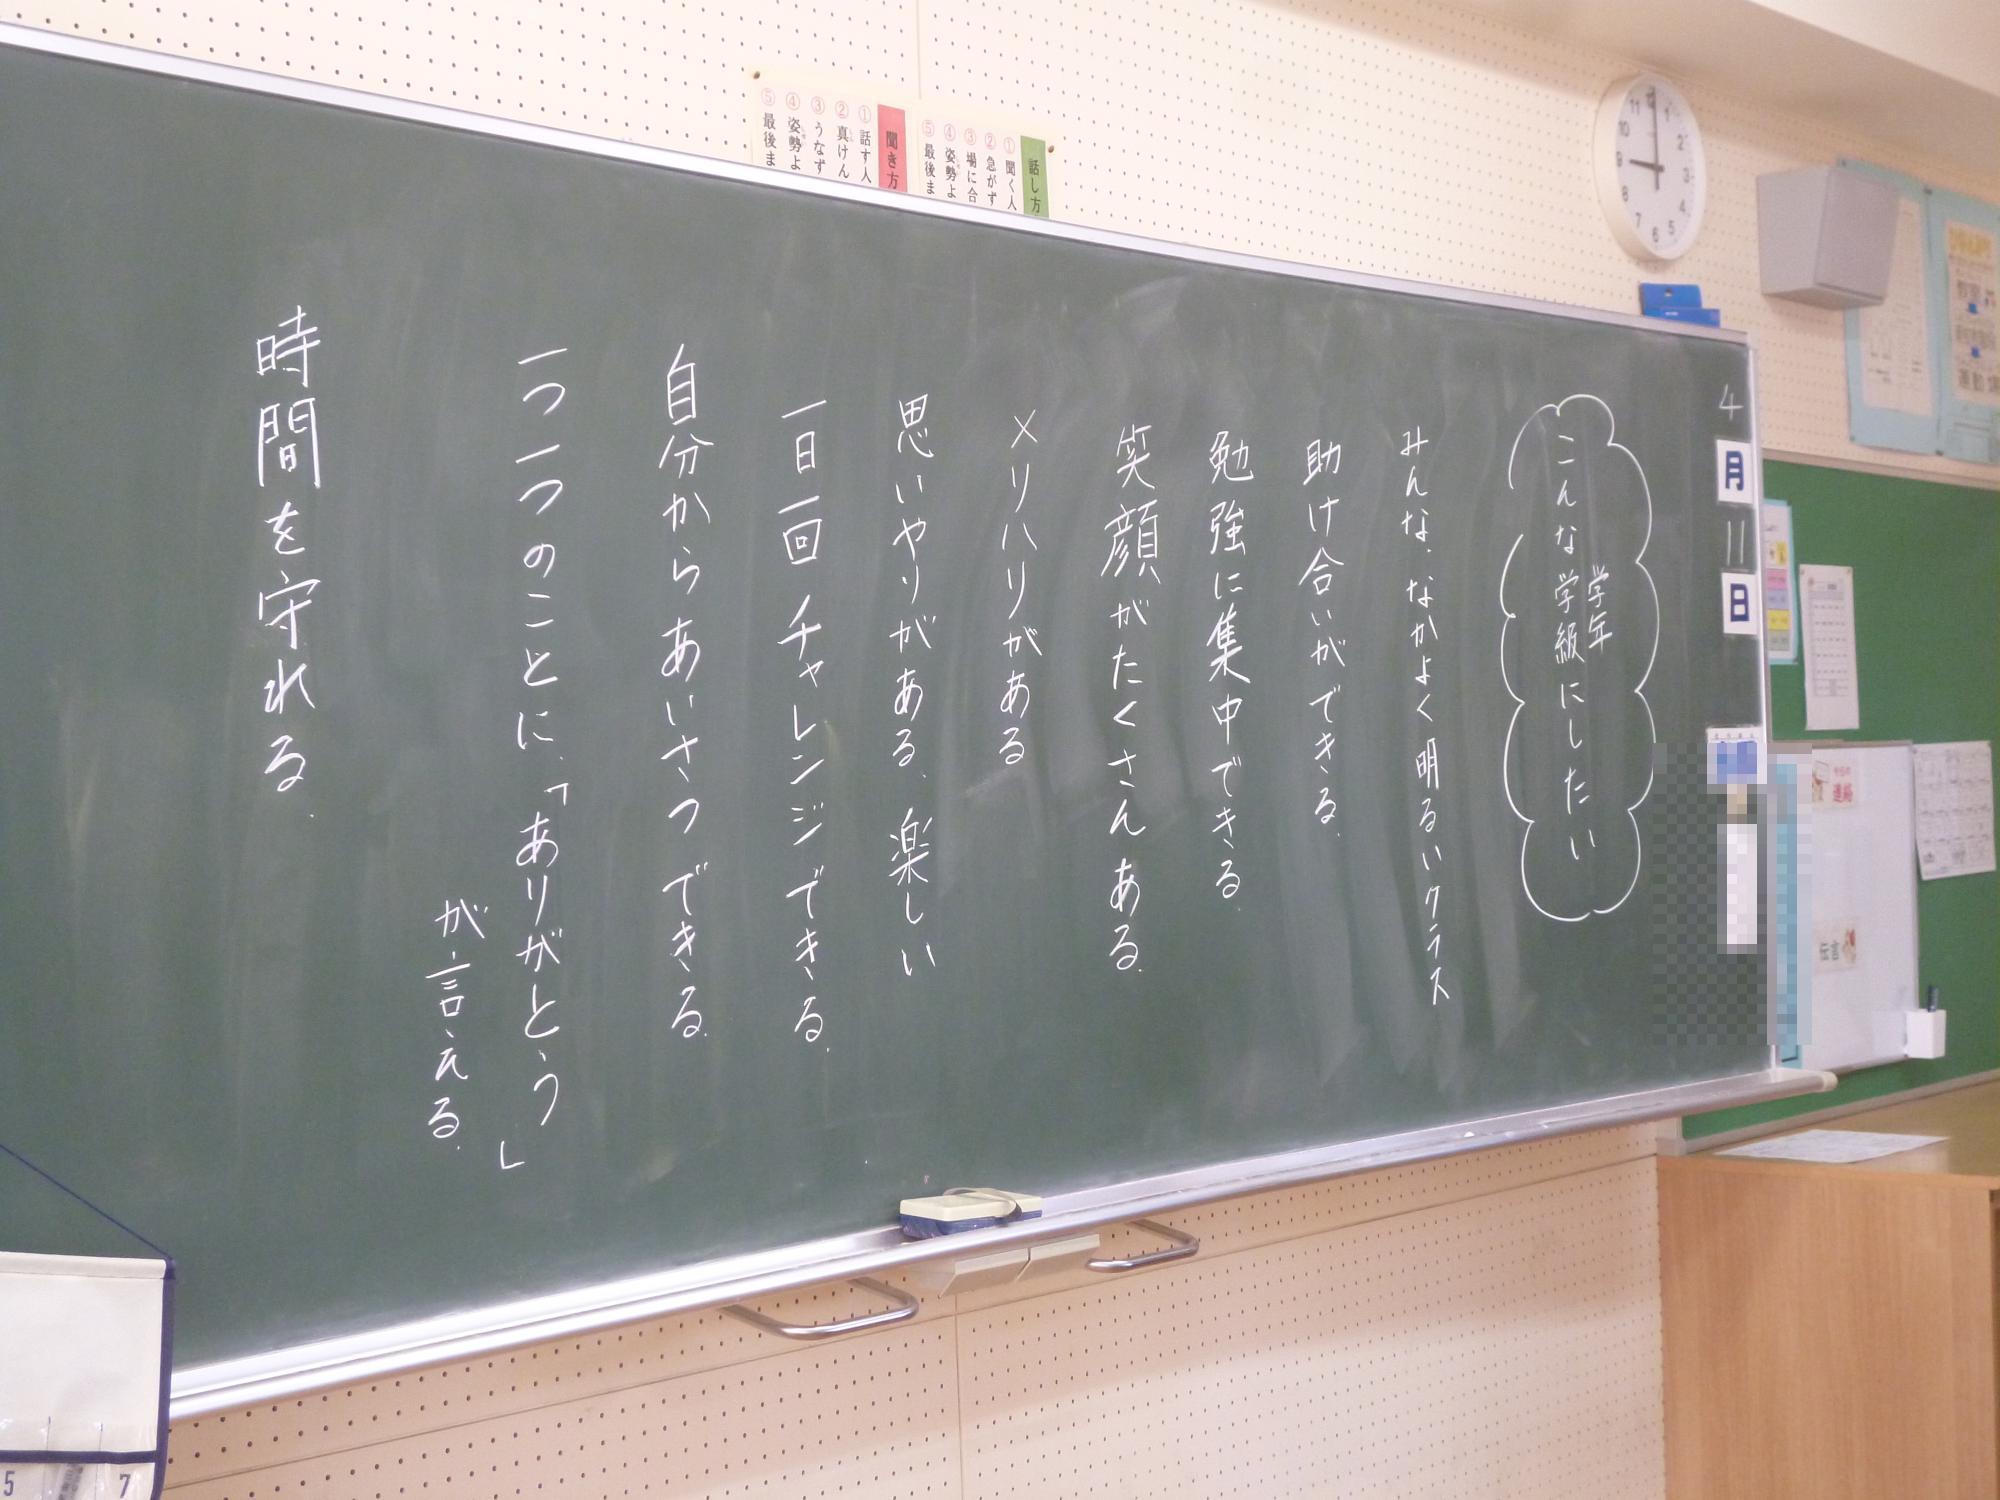 4月11日
学年
こんな学級にしたい
みんな、なかよく明るいクラス
助け合いができる。
勉強に集中できる。
笑顔がたくさんある。
メリハリがある
思いやりがある、楽しい
一日一回チャレンジできる。
自分からあいさつできる。
一つ一つのことに、「ありがとう」
が言える。
時間を守れる。
話し方
①聞く人
②急がず
③場に合
④姿勢よ
⑤最後ま
聞き方
①話す人
②真けん
③うなず
④姿勢よ
⑤最後ま
11 1 2 3 4 5 6 7 8 9 10
今日の
連絡
伝言
5 7